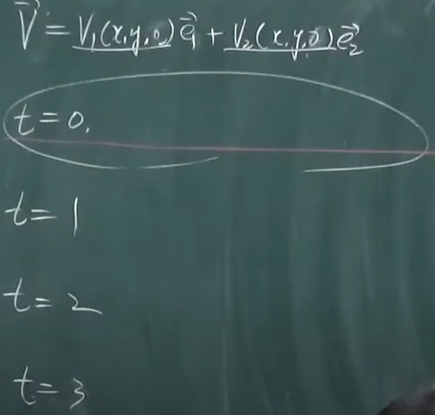 V⃗ = V₁(x,y,0)e⃗₁ + V₂(x,y,0)e⃗₂
t = 0.
t = 1
t = 2
t = 3